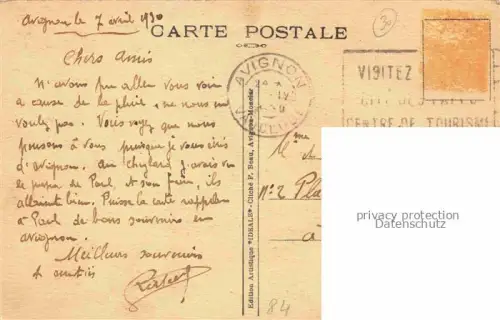 Avignon le 7 avril 1930
CARTE POSTALE
30
Chers Amis
N'avons pu aller vous voir
a cause de la pluie, ne nous en
voulez pas. Vous voyez que nous
pensons à vous puisque je vous écris
d'avignon. au j'avais vu
le de Paul et son frère, ils
allaient bien. Puisse la carte rappeler
à Paul de bons souvenirs en
avignon.
Meilleurs souvenirs
& amitiés
AVIGNON
VAUCLUSE
VISITEZ
CENTRE DE TOURISME
Edition Artistique "IDEALE" - Cliché F. Beau, Avignon
Mme
N° 2 Pla
à
84
privacy protection
Datenschutz